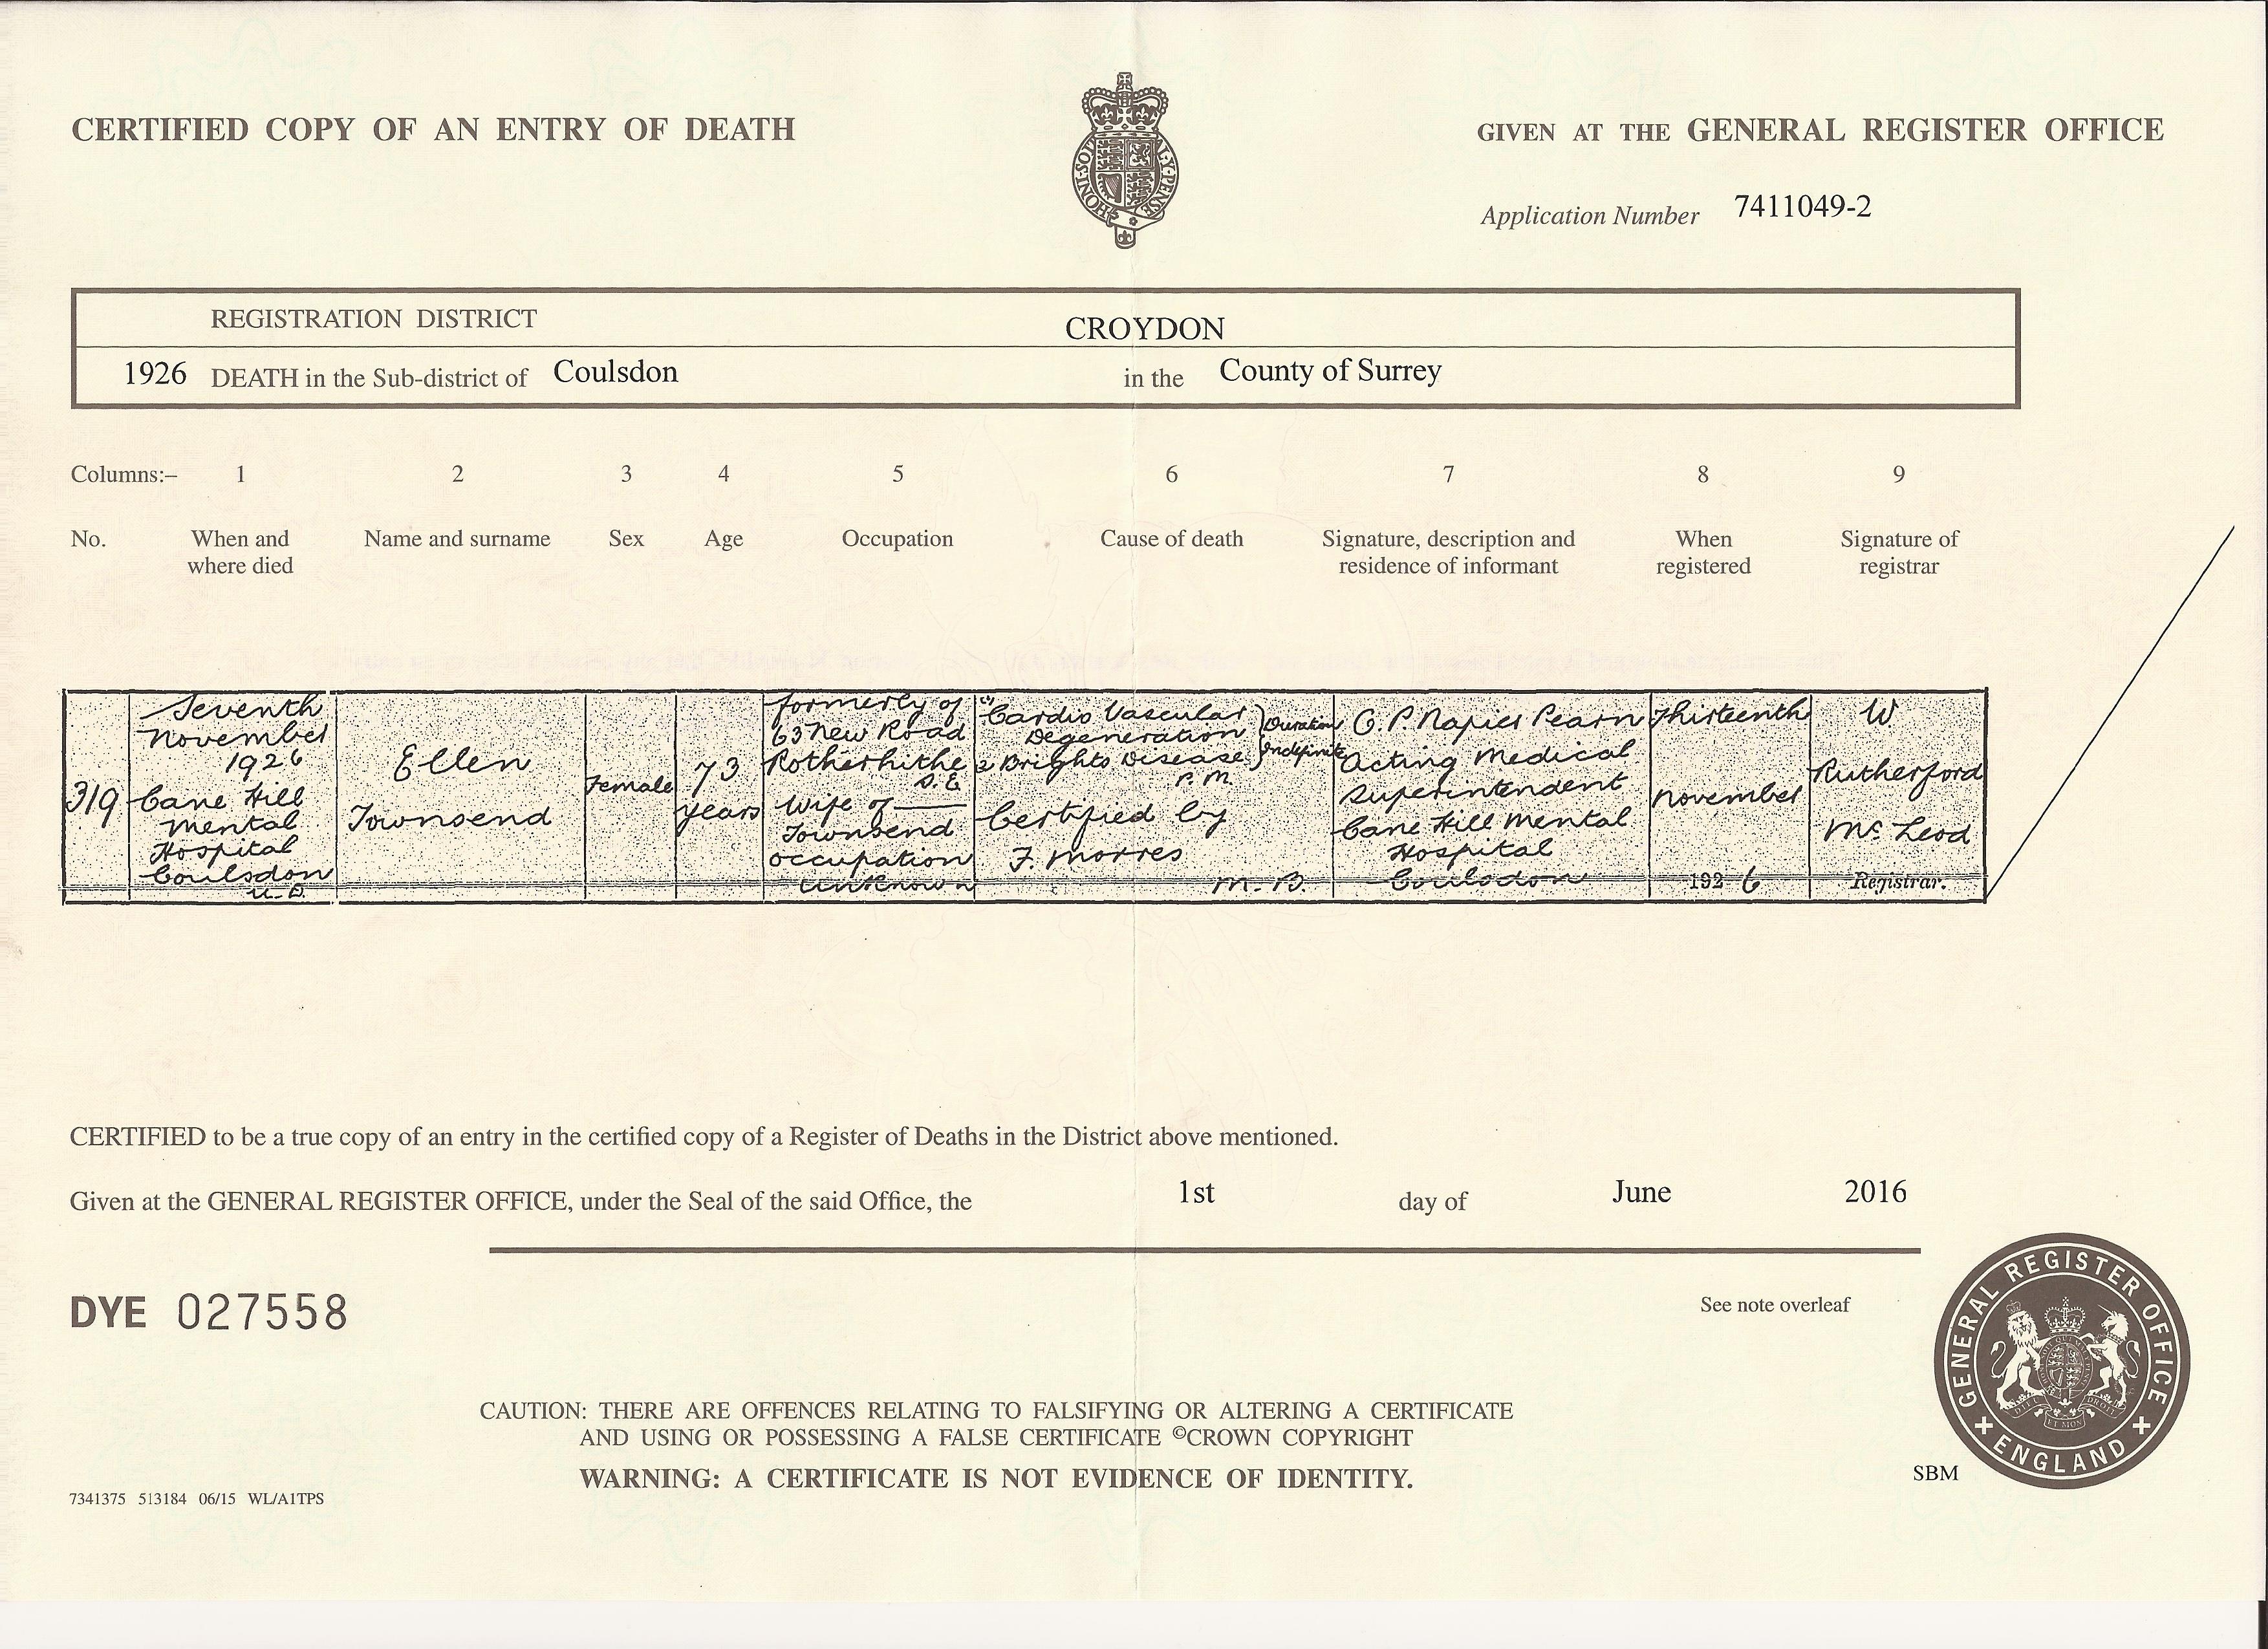 CERTIFIED COPY OF AN ENTRY OF DEATH
HONI·SOIT Y·PENSE
GIVEN AT THE GENERAL REGISTER OFFICE
Application Number 7411049-2
REGISTRATION DISTRICT CROYDON
1926 DEATH in the Sub-district of Coulsdon in the County of Surrey
Columns:– 1 2 3 4 5 6 7 8 9
No. When and where died Name and surname Sex Age Occupation Cause of death Signature, description and residence of informant When registered Signature of registrar
319
Seventh
November
1926
Cane Hill
Mental
Hospital
Coulsdon
U.D.
Ellen
Townsend
Female
73
years
formerly of
63 New Road
Rotherhithe
S.E
Wife of ——
Townsend
occupation
unknown
(1) Cardio Vascular
Degeneration
2 Brights Disease
} Duration
Indefinite
P.M.
Certified by
F. Morres
M.B.
O. P. Napier Pearn
Acting Medical
Superintendent
Cane Hill Mental
Hospital
Coulsdon
Thirteenth
November
1926
W
Rutherford
Mc Leod
Registrar.
CERTIFIED to be a true copy of an entry in the certified copy of a Register of Deaths in the District above mentioned.
Given at the GENERAL REGISTER OFFICE, under the Seal of the said Office, the 1st day of June 2016
DYE 027558
See note overleaf
GENERAL REGISTER OFFICE
ENGLAND
CAUTION: THERE ARE OFFENCES RELATING TO FALSIFYING OR ALTERING A CERTIFICATE
AND USING OR POSSESSING A FALSE CERTIFICATE ©CROWN COPYRIGHT
WARNING: A CERTIFICATE IS NOT EVIDENCE OF IDENTITY.
SBM
7341375 513184 06/15 WL/A1TPS